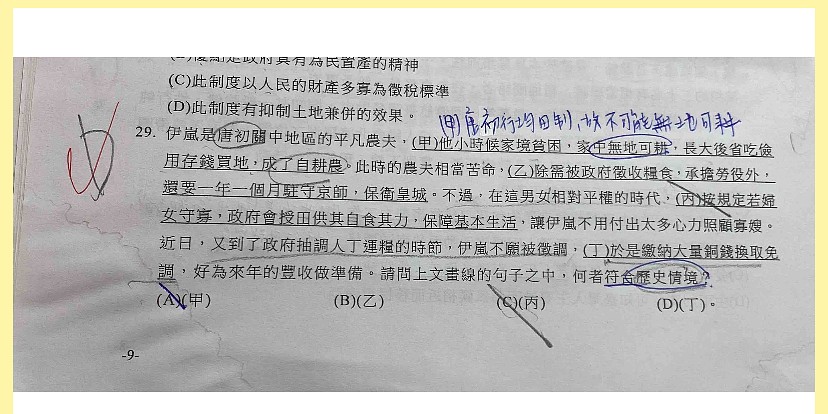 (B)授給是政府具有為民置產的精神
(C)此制度以人民的財產多寡為徵稅標準
(D)此制度有抑制土地兼併的效果。
(甲)唐初行均田制,故不可能無土地可耕
29. 伊嵐是唐初關中地區的平凡農夫,(甲)他小時候家境貧困,家中無地可耕,長大後省吃儉
用存錢買地,成了自耕農。此時的農夫相當苦命,(乙)除需被政府徵收糧食,承擔勞役外,
還要一年一個月駐守京師,保衛皇城。不過,在這男女相對平權的時代,(丙)按規定若婦
女守寡,政府會授田供其自食其力,保障基本生活,讓伊嵐不用付出太多心力照顧寡嫂。
近日,又到了政府抽調人丁運糧的時節,伊嵐不願被徵調,(丁)於是繳納大量銅錢換取免
調,好為來年的豐收做準備。請問上文畫線的句子之中,何者符合歷史情境?
(A)(甲) (B)(乙) (C)(丙) (D)(丁)。
-9-